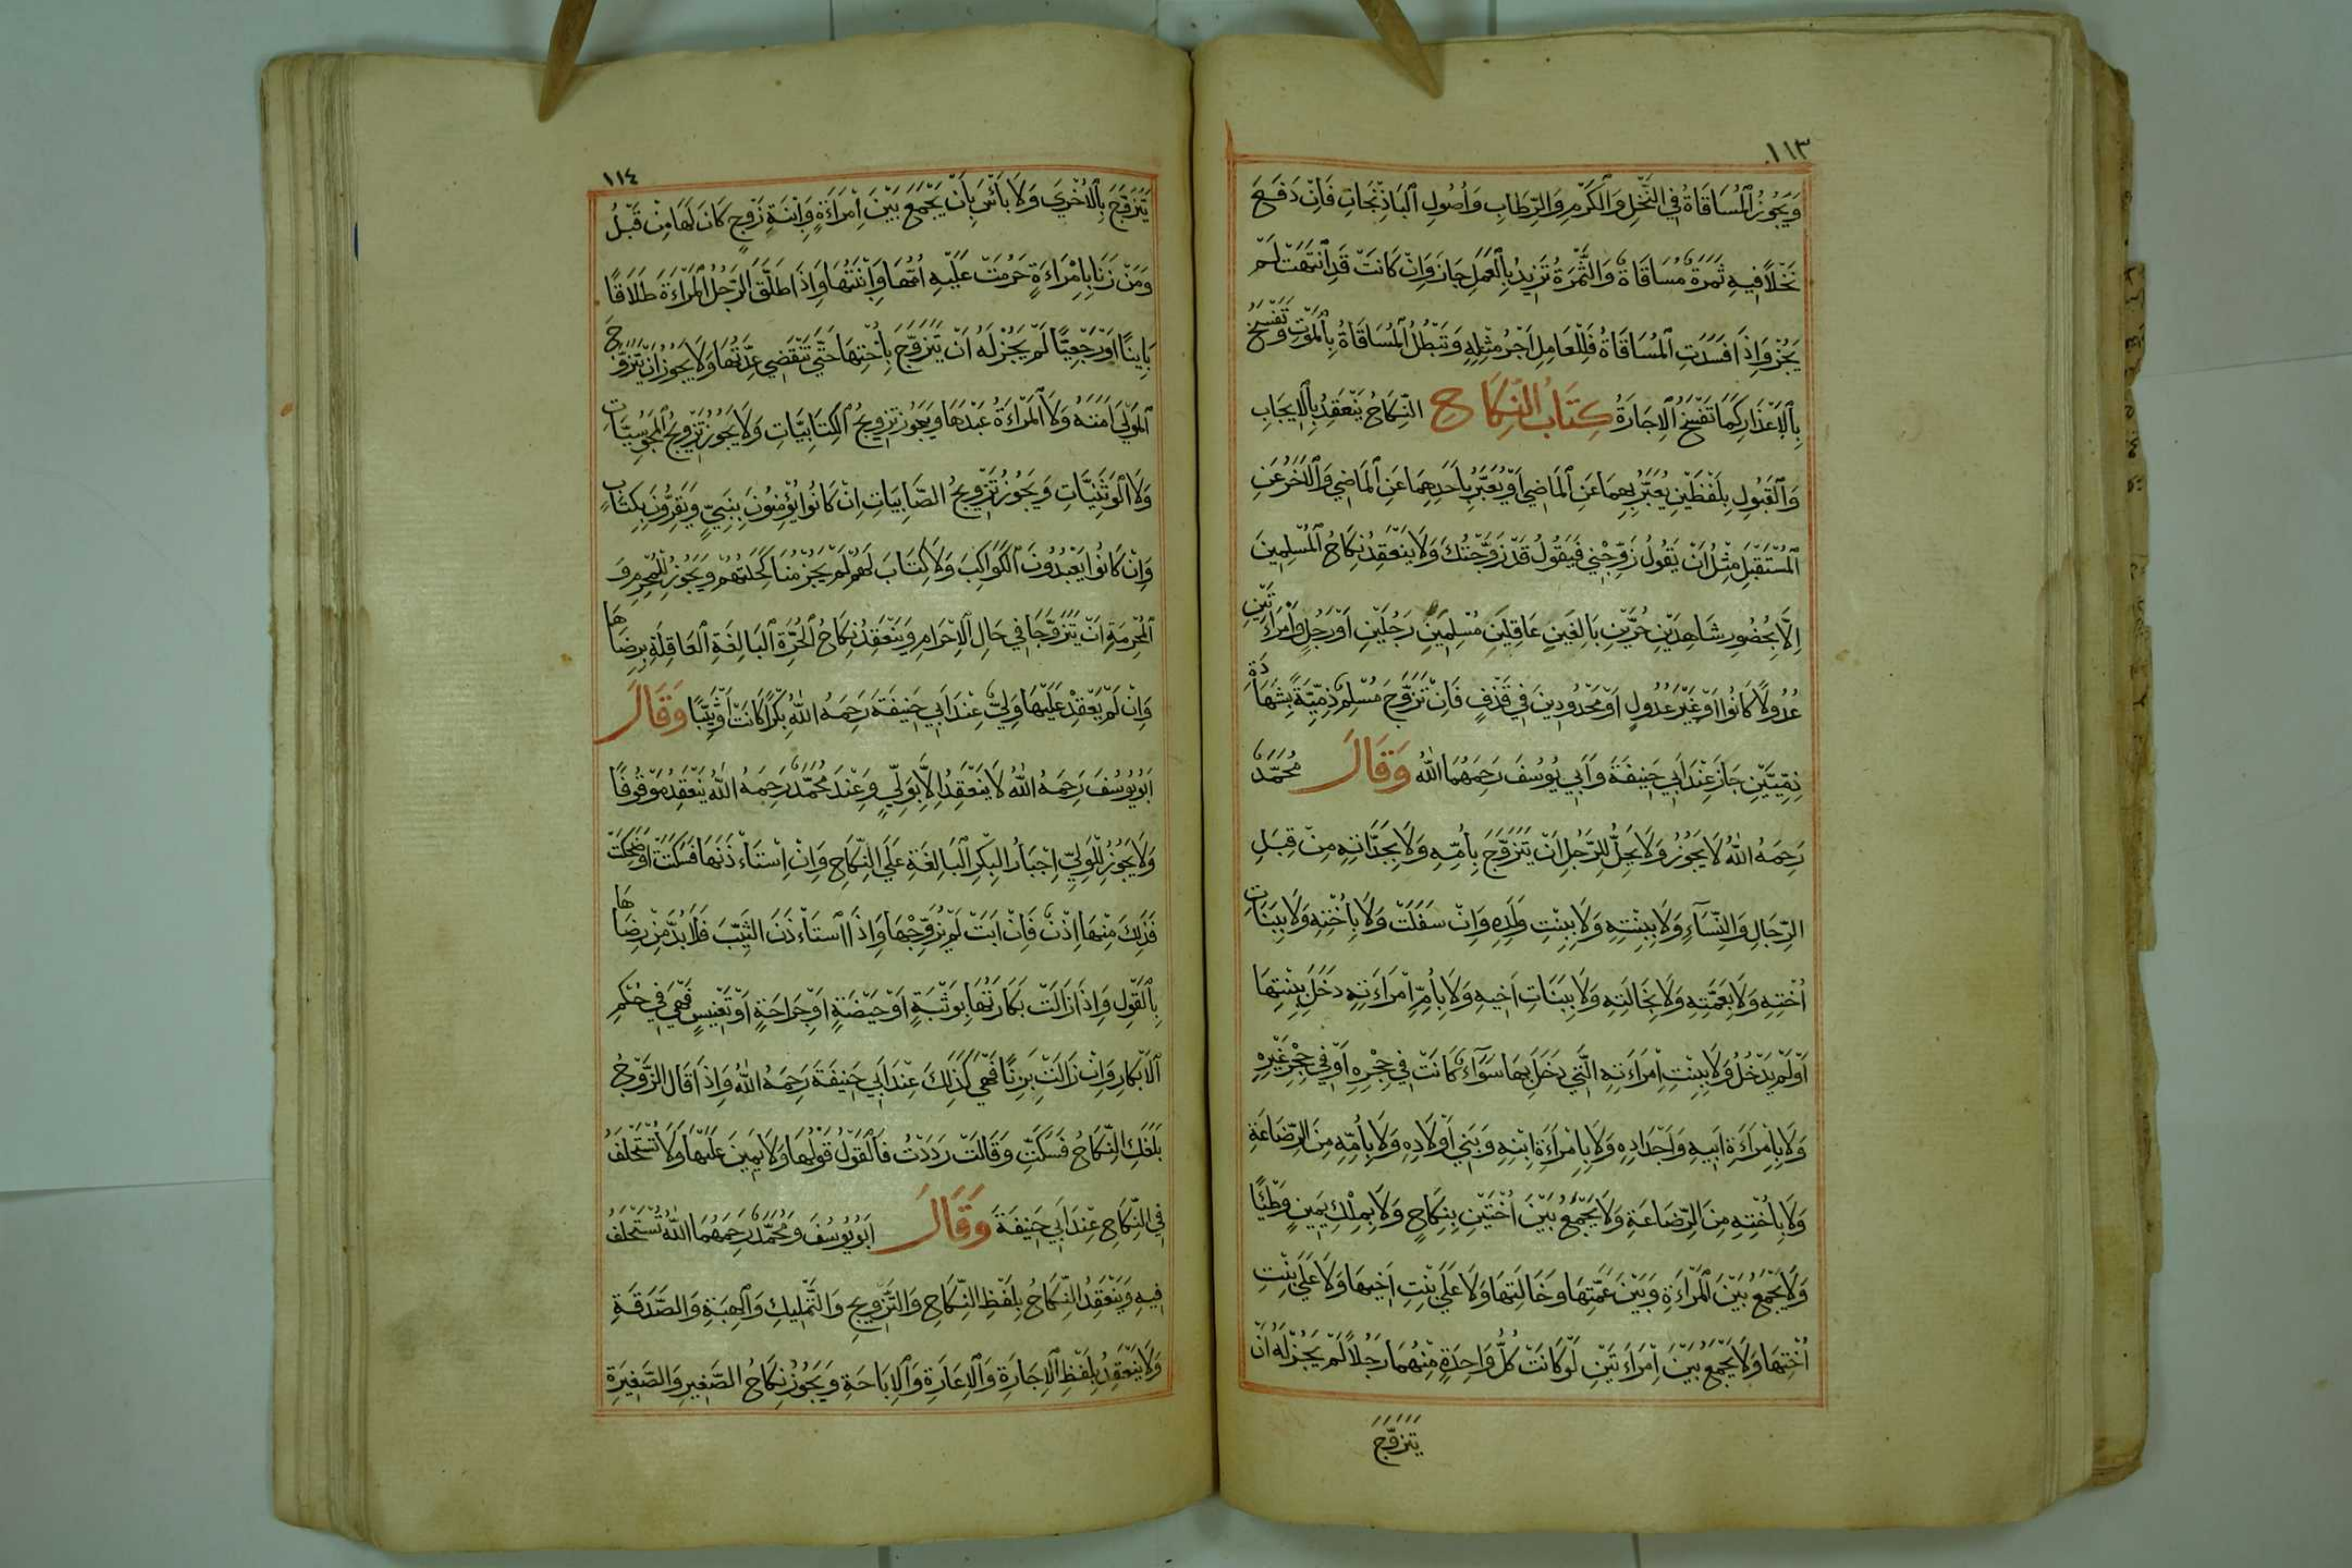 ١١٣
وَيَجُوزُ الْمُسَاقَاةُ فِي النَّخْلِ وَالْكَرْمِ وَالرِّطَابِ وَأُصُولِ الْبَاذِنْجَانِ فَاِنْ دَفَعَ
نَخْلًا فِيهِ ثَمَرَةٌ مُسَاقَاةً وَالثَّمَرَةُ تَزِيدُ بِالْعَمَلِ جَازَ وَاِنْ كَانَتْ قَدِ انْتَهَتْ لَمْ
يَجُزْ وَاِذَا فَسَدَتِ الْمُسَاقَاةُ فَلِلْعَامِلِ اَجْرُ مِثْلِهِ وَتَبْطُلُ الْمُسَاقَاةُ بِالْمَوْتِ وَتُفْسَخُ
بِالْاَعْذَارِ كَمَا تُفْسَخُ الْاِجَارَةُ كِتَابُ النِّكَاحِ النِّكَاحُ يَنْعَقِدُ بِالْاِيجَابِ
وَالْقَبُولِ بِلَفْظَيْنِ يُعَبَّرُ بِهِمَا عَنِ الْمَاضِي اَوْ يُعَبَّرُ بِاَحَدِهِمَا عَنِ الْمَاضِي وَالْآخَرُ عَنِ
الْمُسْتَقْبَلِ مِثْلُ اَنْ يَقُولُ زَوِّجْنِي فَيَقُولُ قَدْ زَوَّجْتُكَ وَلَا يَنْعَقِدُ نِكَاحُ الْمُسْلِمِينَ
اِلَّا بِحُضُورِ شَاهِدَيْنِ حُرَّيْنِ بَالِغَيْنِ عَاقِلَيْنِ مُسْلِمَيْنِ رَجُلَيْنِ اَوْ رَجُلٍ وَامْرَاَتَيْنِ
عُدُولًا كَانُوا اَوْ غَيْرَ عُدُولٍ اَوْ مَحْدُودِينَ فِي قَذْفٍ فَاِنْ تَزَوَّجَ مُسْلِمٌ ذِمِّيَّةً بِشَهَادَةِ
ذِمِّيَّيْنِ جَازَ عِنْدَ اَبِي حَنِيفَةَ وَاَبِي يُوسُفَ رَحِمَهُمَا اللّٰهُ وَقَالَ مُحَمَّدٌ
رَحِمَهُ اللّٰهُ لَا يَجُوزُ وَلَا يَحِلُّ لِلرَّجُلِ اَنْ يَتَزَوَّجَ بِاُمِّهِ وَلَا بِجَدَّاتِهِ مِنْ قِبَلِ
الرِّجَالِ وَالنِّسَآءِ وَلَا بِبِنْتِهِ وَلَا بِبِنْتِ وَلَدِهِ وَاِنْ سَفَلَتْ وَلَا بِاُخْتِهِ وَلَا بِبَنَاتِ
اُخْتِهِ وَلَا بِعَمَّتِهِ وَلَا بِخَالَتِهِ وَلَا بِبَنَاتِ اَخِيهِ وَلَا بِاُمِّ اِمْرَاَتِهِ دَخَلَ بِبِنْتِهَا
اَوْ لَمْ يَدْخُلْ وَلَا بِبِنْتِ اِمْرَاَتِهِ الَّتِي دَخَلَ بِهَا سَوَآءٌ كَانَتْ فِي حِجْرِهِ اَوْ فِي حِجْرِ غَيْرِهِ
وَلَا بِاِمْرَاَةِ اَبِيهِ وَاَجْدَادِهِ وَلَا بِاِمْرَاَةِ ابْنِهِ وَبَنِي اَوْلَادِهِ وَلَا بِاُمِّهِ مِنَ الرَّضَاعَةِ
وَلَا بِاُخْتِهِ مِنَ الرِّضَاعَةِ وَلَا يَجْمَعُ بَيْنَ اُخْتَيْنِ بِنِكَاحٍ وَلَا بِمِلْكِ يَمِينٍ وَطْئًا
وَلَا يَجْمَعُ بَيْنَ الْمَرْاَةِ وَبَيْنَ عَمَّتِهَا وَخَالَتِهَا وَلَا عَلَى بِنْتِ اَخِيهَا وَلَا عَلَى بِنْتِ
اُخْتِهَا وَلَا يَجْمَعُ بَيْنَ اِمْرَاَتَيْنِ لَوْ كَانَتْ كُلُّ وَاحِدَةٍ مِنْهُمَا رَجُلًا لَمْ يَجُزْ لَهُ اَنْ
يَتَزَوَّجَ
١١٤
يَتَزَوَّجَ بِالْاُخْرَى وَلَا بَأْسَ بِاَنْ يَجْمَعَ بَيْنَ اِمْرَاَةٍ وَابْنَةِ زَوْجٍ كَانَ لَهَا مِنْ قَبْلُ
وَمَنْ زَنَا بِاِمْرَاَةٍ حَرُمَتْ عَلَيْهِ اُمُّهَا وَابْنَتُهَا وَاِذَا طَلَّقَ الرَّجُلُ الْمَرْاَةَ طَلَاقًا
بَايِنًا اَوْ رَجْعِيًّا لَمْ يَجُزْ لَهُ اَنْ يَتَزَوَّجَ بِاُخْتِهَا حَتَّى تَنْقَضِي عِدَّتُهَا وَلَا يَجُوزُ اَنْ يَتَزَوَّجَ
الْمَوْلَى اَمَتَهُ وَلَا الْمَرْاَةُ عَبْدَهَا وَيَجُوزُ تَزْوِيجُ الْكِتَابِيَّاتِ وَلَا يَجُوزُ تَزْوِيجُ الْمَجُوسِيَّاتِ
وَلَا الْوَثَنِيَّاتِ وَيَجُوزُ تَزْوِيجُ الصَّابِيَاتِ اِنْ كَانُوا يُؤْمِنُونَ بِنَبِيٍّ وَيَقِرُّونَ بِكِتَابٍ
وَاِنْ كَانُوا يَعْبُدُونَ الْكَوَاكِبَ وَلَا كِتَابَ لَهُمْ لَمْ يَجُزْ مُنَاكَحَتُهُمْ وَيَجُوزُ لِلْمُحْرِمِ وَ
الْمُحْرِمَةِ اَنْ يَتَزَوَّجَا فِي حَالِ الْاِحْرَامِ وَيَنْعَقِدُ نِكَاحُ الْحُرَّةِ الْبَالِغَةِ الْعَاقِلَةِ بِرِضَاهَا
وَاِنْ لَمْ يَعْقِدْ عَلَيْهَا وَلِيٌّ عِنْدَ اَبِي حَنِيفَةَ رَحِمَهُ اللّٰهُ بِكْرًا كَانَتْ اَوْ ثَيِّبًا وَقَالَ
اَبُو يُوسُفَ رَحِمَهُ اللّٰهُ لَا يَنْعَقِدُ اِلَّا بِوَلِيٍّ وَعِنْدَ مُحَمَّدٌ رَحِمَهُ اللّٰهُ يَنْعَقِدُ مَوْقُوفًا
وَلَا يَجُوزُ لِلْوَلِيِّ اِجْبَارُ الْبِكْرِ الْبَالِغَةِ عَلَى النِّكَاحِ وَاِنْ اِسْتَأْذَنَهَا فَسَكَتَتْ اَوْ ضَحِكَتْ
فَذٰلِكَ مِنْهَا اِذْنٌ فَاِنْ اَبَتْ لَمْ يُزَوِّجْهَا وَاِذَا اسْتَأْذَنَ الثَّيِّبَ فَلَا بُدَّ مِنْ رِضَاهَا
بِالْقَوْلِ وَاِذَا زَالَتْ بَكَارَتُهَا بِوَثْبَةٍ اَوْ حَيْضَةٍ اَوْ جَرَاحَةٍ اَوْ تَعْنِيسٍ فَهِيَ فِي حُكْمِ
الْاَبْكَارِ وَاِنْ زَالَتْ بِزِنًا فَهِيَ كَذٰلِكَ عِنْدَ اَبِي حَنِيفَةَ رَحِمَهُ اللّٰهُ وَاِذَا قَالَ الزَّوْجُ
بَلَغَكِ النِّكَاحُ فَسَكَتِّ وَقَالَتْ رَدَدْتُ فَالْقَوْلُ قَوْلُهَا وَلَا يَمِينَ عَلَيْهَا وَلَا تُسْتَحْلَفُ
فِي النِّكَاحِ عِنْدَ اَبِي حَنِيفَةَ وَقَالَ اَبُو يُوسُفَ وَمُحَمَّدٌ رَحِمَهُمَا اللّٰهُ تُسْتَحْلَفُ
فِيهِ وَيَنْعَقِدُ النِّكَاحُ بِلَفْظِ النِّكَاحِ وَالتَّزْوِيجِ وَالتَّمْلِيكِ وَالْهِبَةِ وَالصَّدَقَةِ
وَلَا يَنْعَقِدُ بِلَفْظِ الْاِجَارَةِ وَالْاِعَارَةِ وَالْاِبَاحَةِ وَيَجُوزُ نِكَاحُ الصَّغِيرِ وَالصَّغِيرَةِ